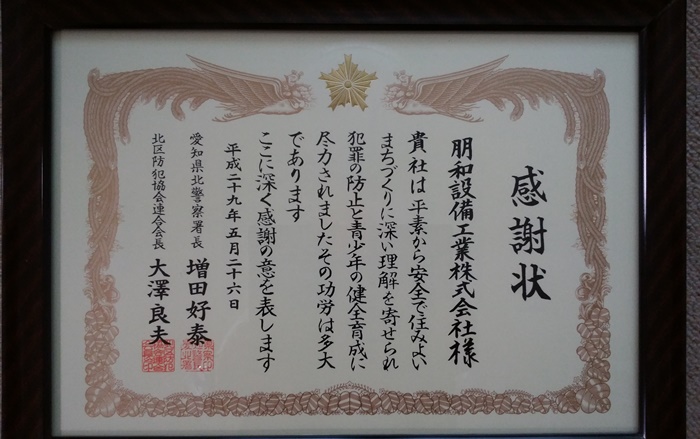 感謝状
朋和設備工業株式会社様
貴社は平素から安全で住みよい
まちづくりに深い理解を寄せられ
犯罪の防止と青少年の健全育成に
尽力されましたその功労は多大
であります
ここに深く感謝の意を表します
平成二十九年五月二十六日
愛知県北警察署長 増田好泰
北区防犯協会連合会長 大澤良夫